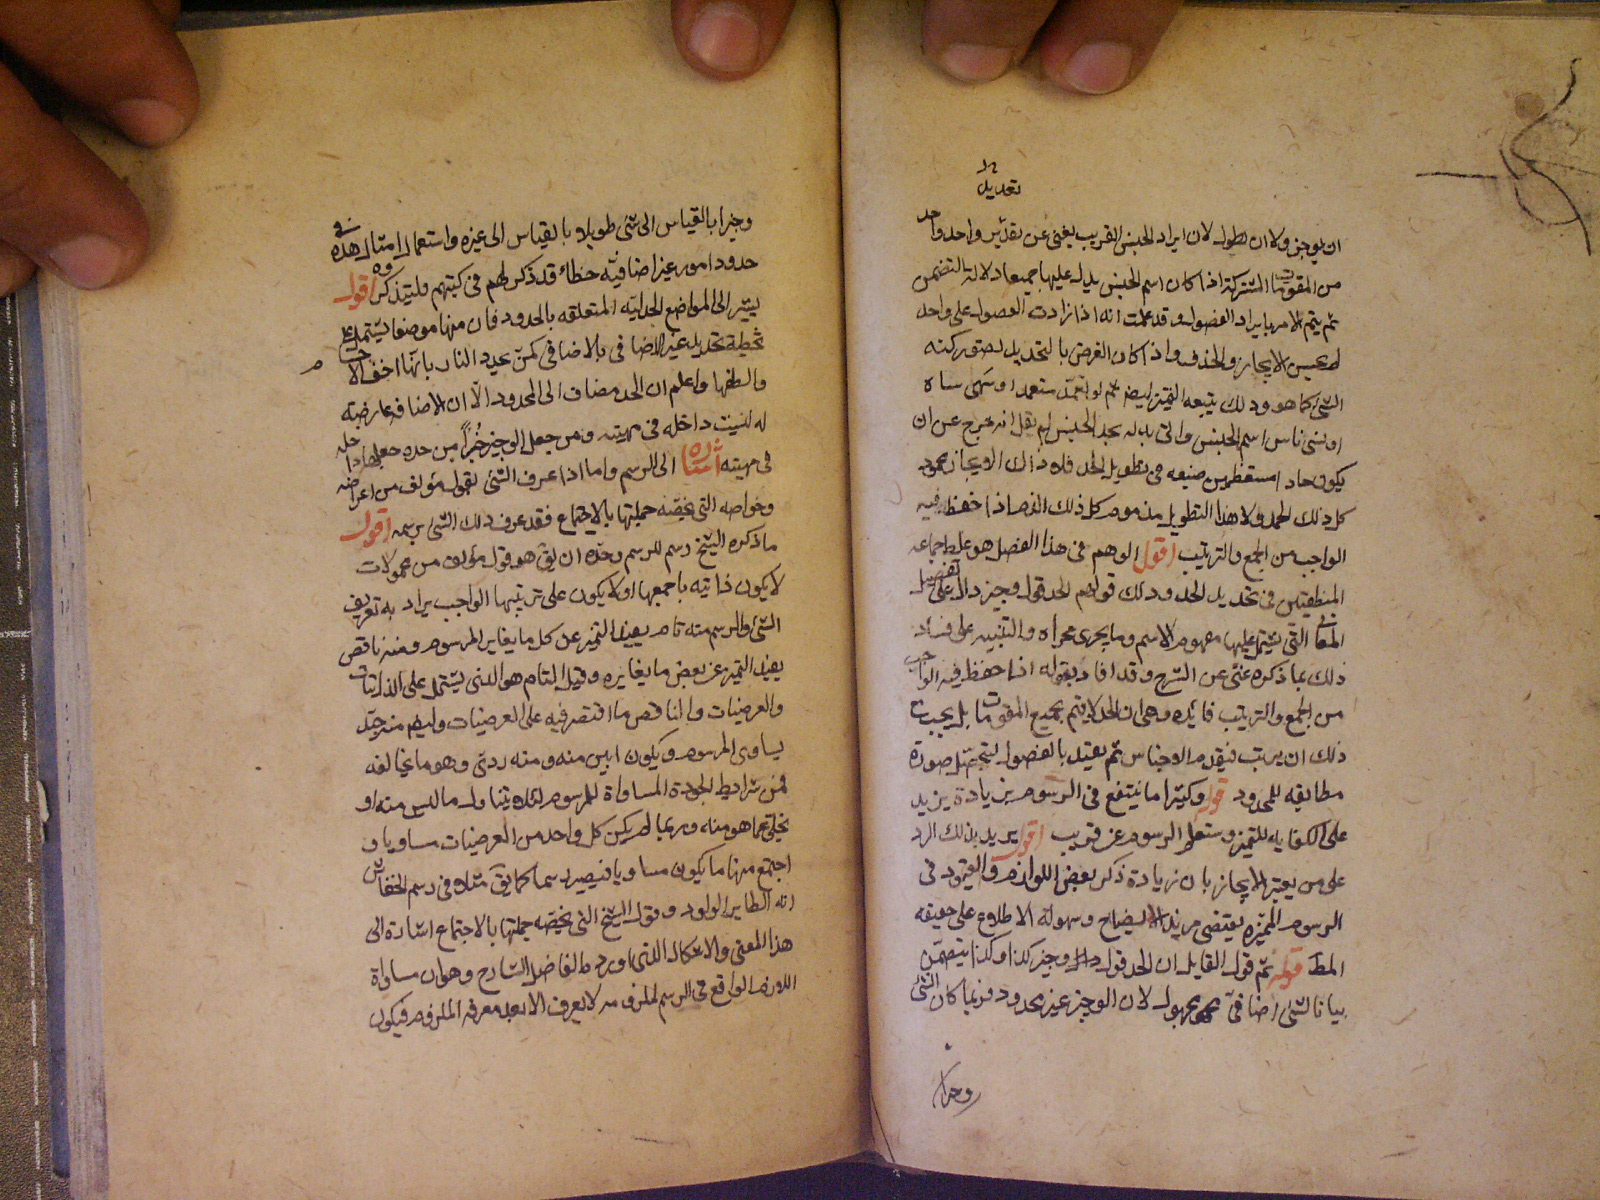 تعديل
ان يوجز ولا ان يطول لان ايراد الجنس القريب يغنى عن تعديد واحد واحد
من المقومات المشتركة اذا كان اسم الجنس يدل عليها جميعا دلالة التضمن
ثم يتم الامر بايراد الفصول وقد علمت انه اذا زادت الفصول على واحد
لم يحسن الايجاز والحذف واذا كان الغرض بالتحديد تصور كنه
الشئ كما هو وذلك يتبعه التميز ايضا ثم لو تعمد متعمد او سهى ساه
او نسى ناس اسم الجنس واتى بدله بحد الجنس لم نقل انه خرج عن ان
يكون حادا مستعظمين صنيعه فى تطويل الحد فلا ذلك الايجاز محمود
كل ذلك الحمد ولا هذا التطويل مذموم كل ذلك الذم اذا حفظ فيه
الواجب من الجمع والترتيب اقول الوهم فى هذا الفصل هو غلط جماعه
المنطقيين فى تحديد الحد وذلك قولهم الحد قول وجيز دال على تفصيل
المعانى التى يشتمل عليها مفهوم الاسم وما يجرى مجراه والتنبيه على فساد
ذلك بما ذكره غنى عن الشرح وقد افاد بقوله اذا حفظ فيه الواجب
من الجمع والترتيب فايدة وهى ان الحد لا يتم بجميع المقومات بل يجب مع
ذلك ان يرتب فيقدم الاجناس ثم يقيد بالفصول ليتحصل صورة
مطابقه للمحدود قوله وكثيرا ما ينتفع فى الرسوم بزيادة يزيد
على الكفايه للتميز وستعلم الرسوم عن قريب اقول يريد بذلك الرد
على من يعتبر الايجاز بان زيادة ذكر بعض اللوازم والقيود فى
الرسوم المميزه يقتضى مزيد الايضاح وسهولة الاطلاع على حقيقه
المط قوله ثم قول القايل ان الحد قول وجيز كذا وكذا يتضمن
بيانا لشئ اضافى مجهول لان الوجيز غير محدود فربما كان الشئ
وجيزا
وجيزا بالقياس الى شئ طويلا بالقياس الى غيره واستعمال امثال هذه فى
حدود امور غير اضافيه خطاء قد ذكر لهم فى كتبهم فليتذكروه اقول
يشير الى المواضع الجدليه المتعلقه بالحدود فان منها موضعا يشتمل على
تخطية تحديد غير الاضافى بالاضافى كمن يحد النار بانها اخف الاجسام
والطفها واعلم ان الحد مضاف الى المحدود الا ان الاضافه عارضة
له ليست داخله فى مهيته ومن جعل الوجيز جزءا من حده جعلها داخله
فى مهيته اشاره الى الرسم واما اذا عرف الشئ بقول مؤلف من اعراضه
وخواصه التى تخصه جملتها بالاجتماع فقد عرف ذلك الشئ برسمه اقول
ما ذكره الشيخ رسم للرسم وحده ان يق هو قول مؤلف من محمولات
لا يكون ذاتيه باجمعها او لا يكون على ترتيبها الواجب يراد به تعريف
الشئ والرسم منه تام يفيد التميز عن كل ما يغاير المرسوم ومنه ناقص
يفيد التميز عن بعض ما يغايره وقيل التام هو الذى يشتمل على الذاتيات
والعرضيات والناقص ما اقتصر فيه على العرضيات وايضا منه جيد
يساوى المرسوم ويكون ابين منه ومنه ردئ وهو ما يخالفه
فمن شرايط الجودة المساواة للمرسوم لئلا يتناول ما ليس منه او
يخلى عما هو منه وربما لم يكن كل واحد من العرضيات مساويا و
اجتمع منها ما يكون مساويا فيصير رسما كما يق مثلا فى رسم الخفاش
انه الطاير الولود وقول الشيخ التى تخصه جملتها بالاجتماع اشارة الى
هذا المعنى والاشكال الذى اورده الفاضل الشارح وهو ان مساواة
اللازم الواقع فى الرسم لملزومه لا يعرف الا بعد معرفه الملزوم فيكون